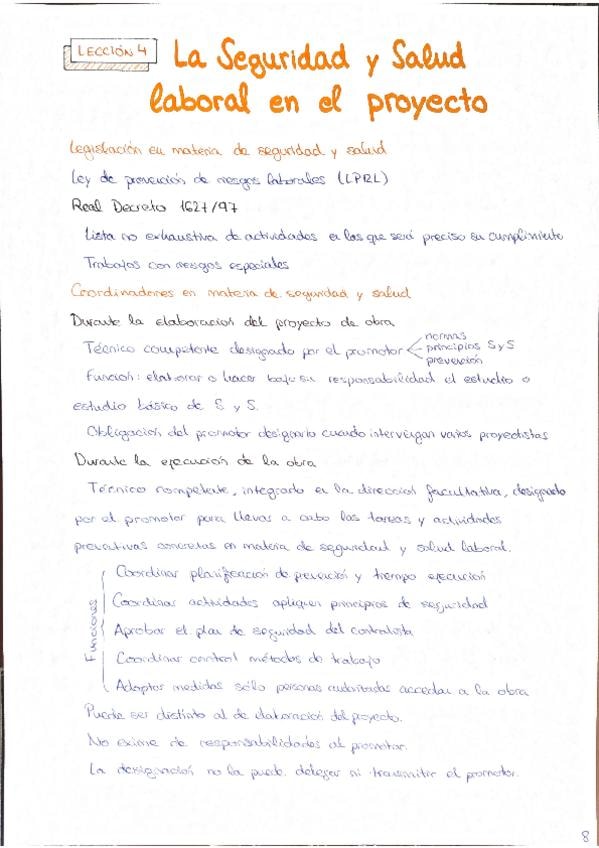 LECCIÓN 4
La Seguridad y Salud
laboral en el proyecto
Legislación en materia de seguridad y salud
Ley de prevención de riesgos laborales (LPRL)
Real Decreto 1627/97
Lista no exhaustiva de actividades en las que será preciso su cumplimiento
Trabajos con riesgos especiales
Coordinadores en materia de seguridad y salud
Durante la elaboración del proyecto de obra
Técnico competente designado por el promotor
normas
principios SyS
prevención
Función: elaborar o hacer bajo su responsabilidad el estudio o
estudio básico de S y S.
Obligación del promotor designarlo cuando intervengan varios proyectistas
Durante la ejecución de la obra
Técnico competente, integrado en la dirección facultativa, designado
por el promotor para llevar a cabo las tareas y actividades
preventivas concretas en materia de seguridad y salud laboral.
Funciones
Coordinar planificación de prevención y tiempo ejecución
Coordinar actividades apliquen principios de seguridad
Aprobar el plan de seguridad del contratista
Coordinar control métodos de trabajo
Adoptar medidas sólo personas autorizadas accedan a la obra
Puede ser distinto al de elaboración del proyecto.
No exime de responsabilidades al promotor.
La designación no la puede delegar ni transmitir el promotor.
8